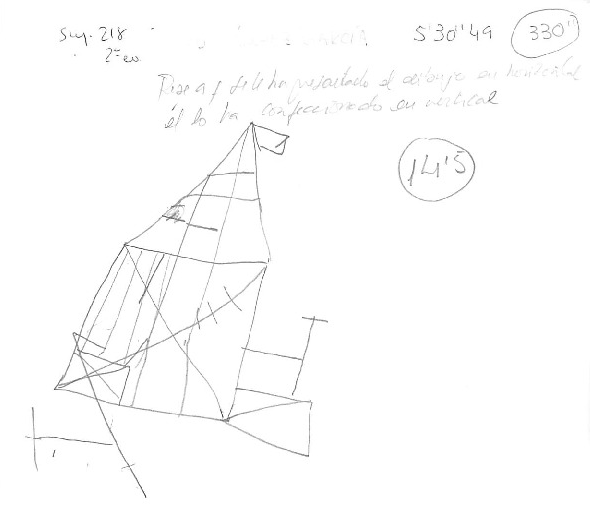 Suj. 218 5'30"49 330"
2º eo
se le ha presentado el dibujo en horizontal
él lo ha confeccionado en vertical
14'5